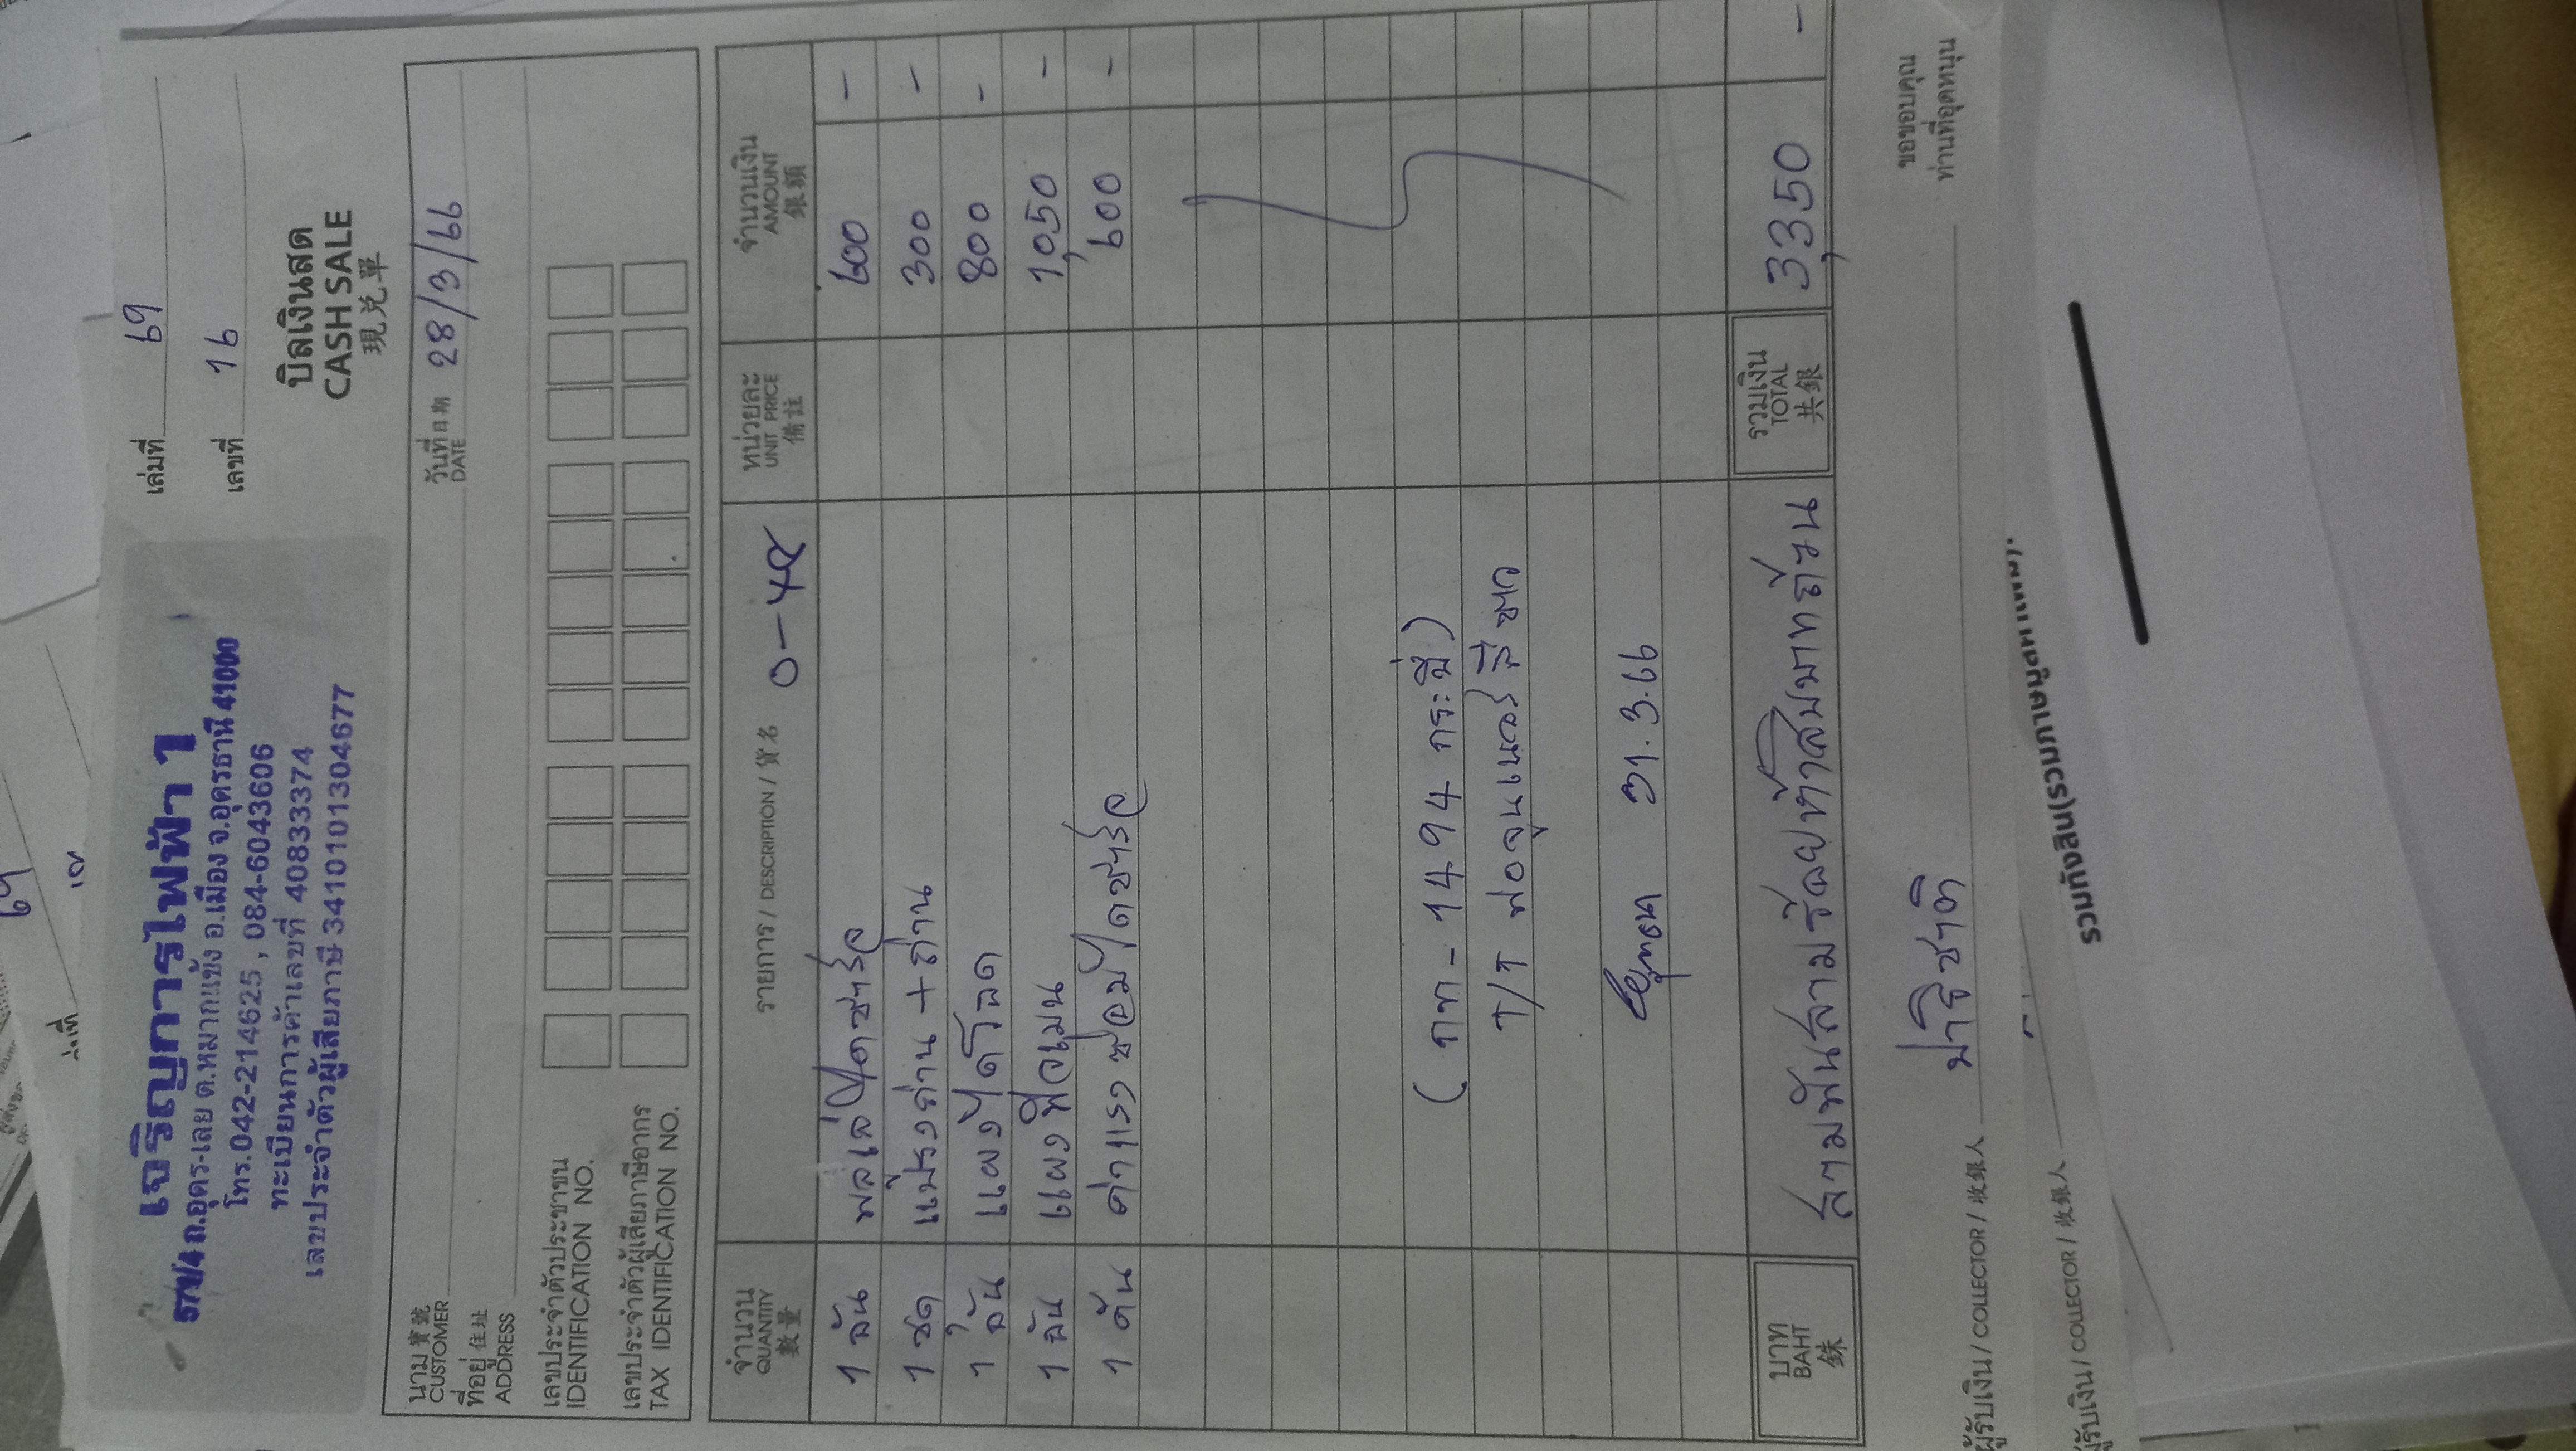 เจริญการไฟฟ้า 1
577/4 ถ.อุดร-เลย ต.หมากแข้ง อ.เมือง จ.อุดรธานี 41000
โทร.042-214625 , 084-6043606
ทะเบียนการค้าเลขที่ 40833374
เลขประจำตัวผู้เสียภาษี 3410101304677
เล่มที่ 69
เลขที่ 16
บิลเงินสด
CASH SALE
現兌單
นาม 寶號
CUSTOMER
วันที่ 日期 28/3/66
DATE
ที่อยู่ 住址
ADDRESS
เลขประจำตัวประชาชน
IDENTIFICATION NO.
เลขประจำตัวผู้เสียภาษีอากร
TAX IDENTIFICATION NO.
จำนวน
QUANTITY
數量
รายการ / DESCRIPTION / 貨名
หน่วยละ
UNIT PRICE
備註
จำนวนเงิน
AMOUNT
銀額
1 อัน พลเล่ไดชาร์จ 600 -
1 ชุด แปรงถ่าน + ถ่าน 300 -
1 อัน แผงไดโอด 800 -
1 อัน แผงฟิลเมน 1,050 -
1 คัน ค่าแรงซ่อมไดชาร์จ 600 -
( กท - 1494 กระบี่ )
T/T ฟอจูนเนอร์ สีขาว
31.3.66
บาท
BAHT
銖
สามพันสามร้อยห้าสิบบาทถ้วน
รวมเงิน
TOTAL
共銀
3,350 -
ผู้รับเงิน / COLLECTOR / 收銀人 ปาริชาติ
ขอขอบคุณ
ท่านที่อุดหนุน
รวมทั้งสิ้น(รวมภาษีมูลค่าเพิ่ม)
ผู้รับเงิน / COLLECTOR / 收銀人